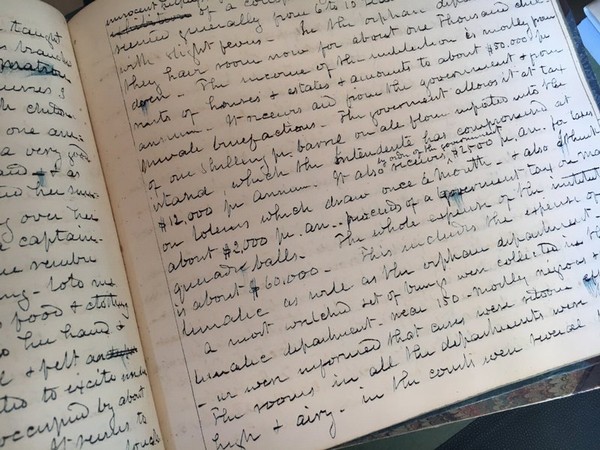 taught
matron
nurses &
with children
one an-
a very good
and & as
over her
captain-
food & clothing
hand &
& felt
to excite
occupied by about
It seems to
innocent
of a
scented generally from 6 to 10
with slight fevers - In the orphan
they have room now for about one thousand
The income of the institution is mostly from
rents of houses & estates & amounts to about $50.000 pr
annum. It receives aid from the government & from
private benefactions - The government allows it a tax
of one shilling pr. barrel on all flour imported into the
island, which the Intendente has compromised at
by order of the government
$12,000 pr annum. It also receives, $1500 pr. an. for
on loteries which draw once a month - & also
about $2,000 pr. an. - proceeds of a government tax on mas
querade balls. - The whole expense of the institut
is about $60.000 - This includes the expense of
lunatic as well as the orphan department -
a most wretched set of beings were collected in the
lunatic department - near 150 - mostly negroes &
- we were informed that cures were seldom
The rooms in all the departments were
high & airy - in the court were several